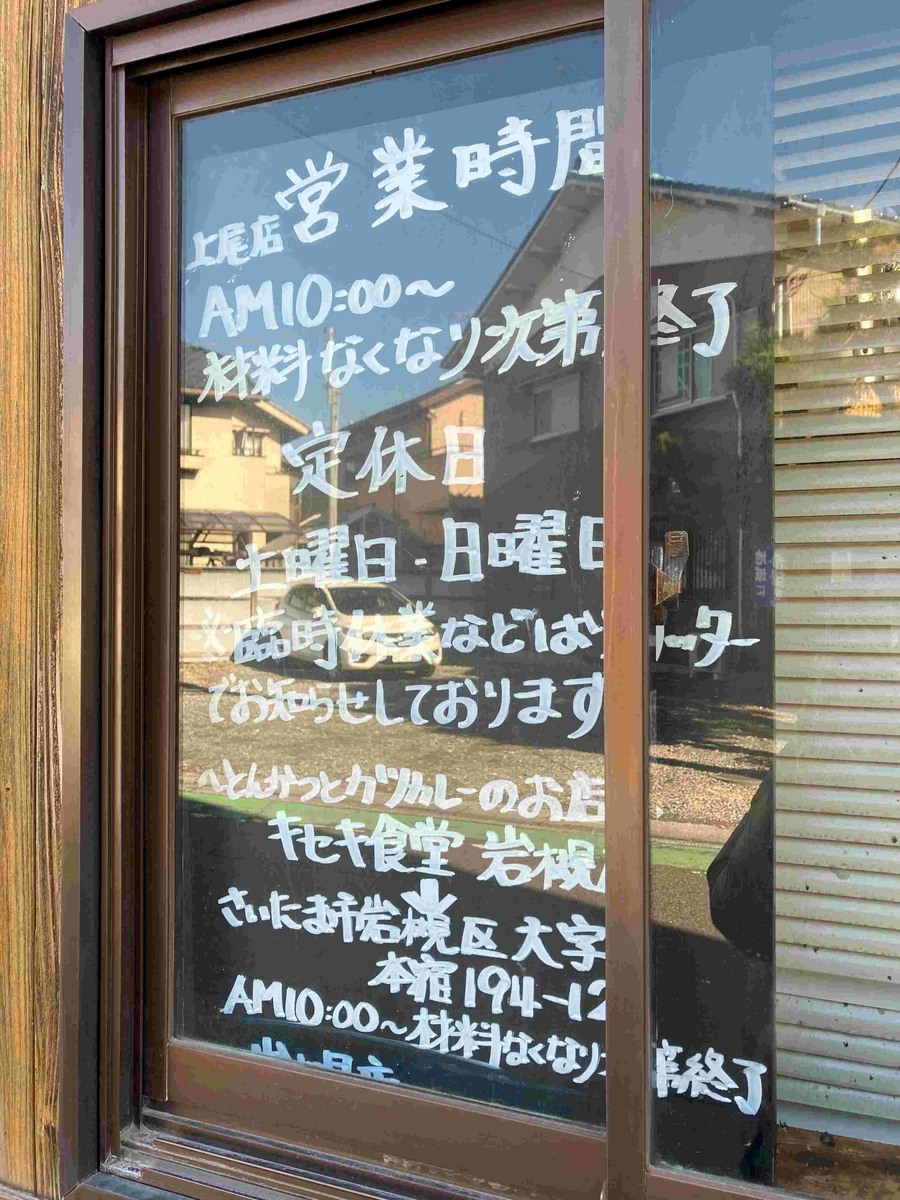 上尾店 営業時間
AM10:00～
材料なくなり次第 終了
定休日
土曜日・日曜日
※臨時休業などは ーター
でお知らせしております
～とんかつとカツカレーのお店
キセキ食堂 岩槻
さいたま市岩槻区大字
本宿194-12
AM10:00～材料なくなり 第終了